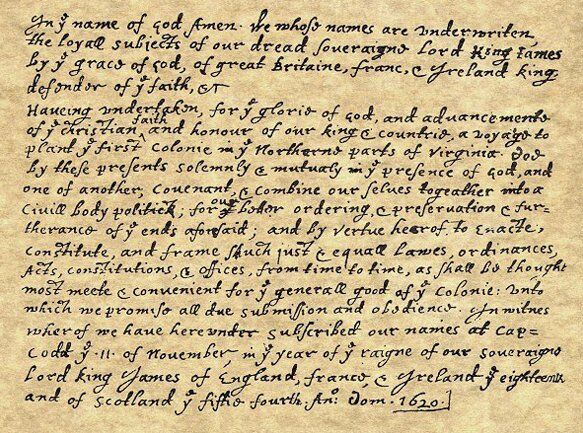 In yᵉ name of god Amen· We whose names are vnderwriten,
the loyall subjects of our dread soveraigne Lord King James
by yᵉ grace of God, of great Britaine, franc, & Ireland king,
defender of yᵉ faith, &c
Haveing vndertaken, for yᵉ glorie of God, and advancemente
of yᵉ christian faith and honour of our king & countrie, a voyage to
plant yᵉ first colonie in yᵉ Northerne parts of Virginia· doe
by these presents solemnly & mutualy in yᵉ presence of God, and
one of another, covenant, & combine our selves togeather into a
civill body politick; for our better ordering, & preservation & fur=
therance of yᵉ ends aforesaid; and by vertue hearof, to enacte,
constitute, and frame such just & equall lawes, ordinances,
Acts, constitutions, & offices, from time to time, as shall be thought
most meete & convenient for yᵉ generall good of yᵉ Colonie: vnto
which we promise all due submission and obedience. In witnes
wherof we have herevnder subscribed our names at Cap=
Codd yᵉ ·11· of November, in yᵉ year of yᵉ raigne of our soveraigne
Lord king James of England, france, & Ireland yᵉ eighteenth
and of Scotland yᵉ fiftie fourth. Anᵒ: Dom. 1620.]